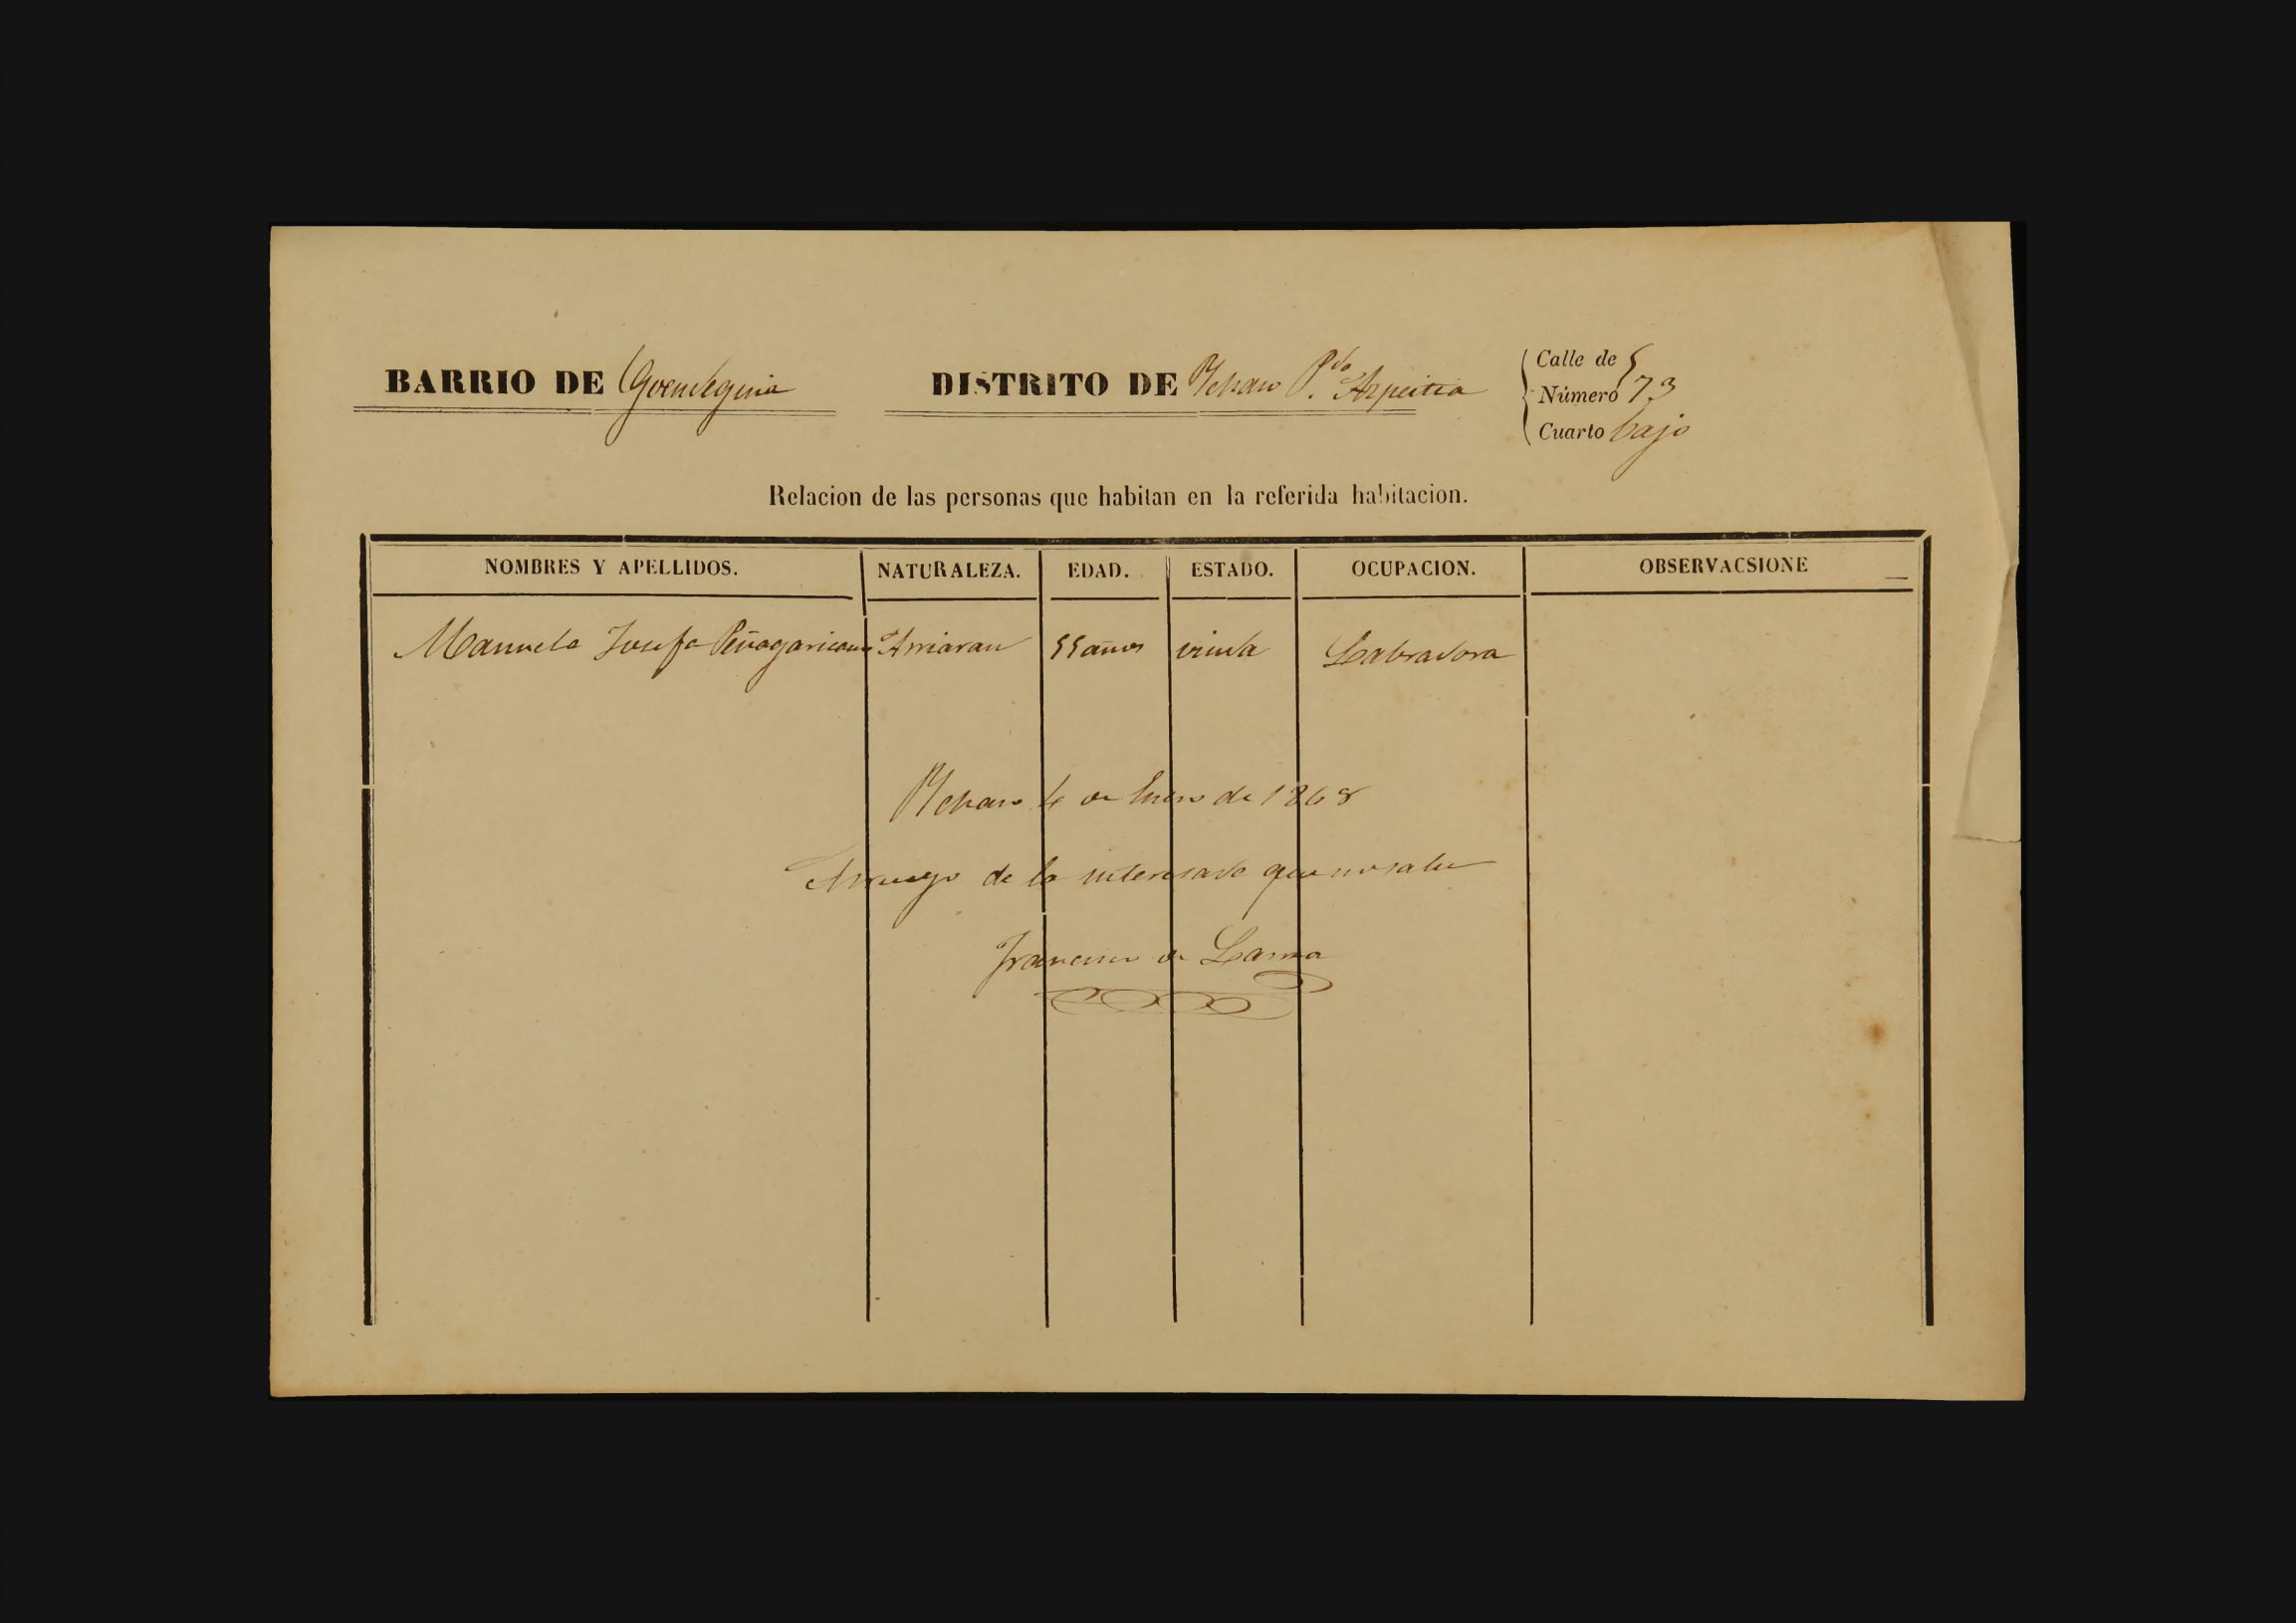 BARRIO DE Goendeguia DISTRITO DE Ychaso P.do Azpeitia
Calle de 5
Número 73
Cuarto bajo
Relacion de las personas que habitan en la referida habitacion.
NOMBRES Y APELLIDOS. NATURALEZA. EDAD. ESTADO. OCUPACION. OBSERVACSIONE
Manuela Josefa Peñagaricano Arriaran 55 años viuda Labradora
Ychaso 4 de Enero de 1868
Arruego de la interesada que no sabe
Francisco de Lasa